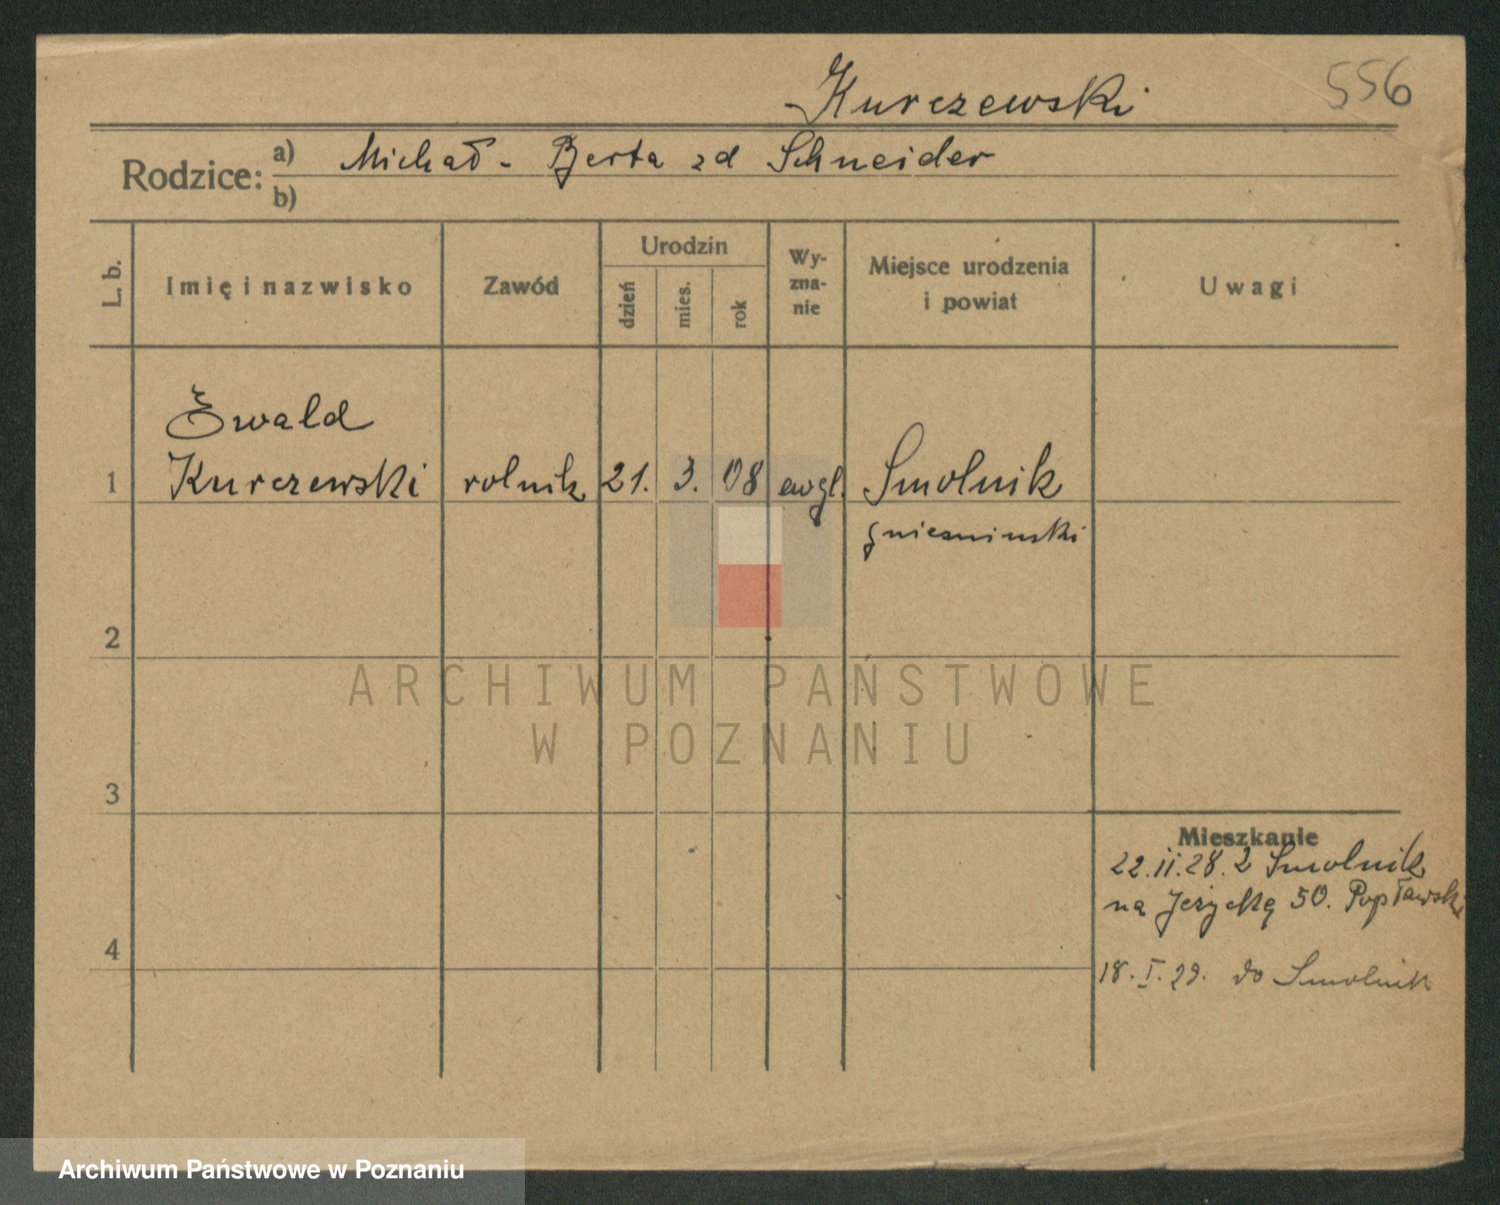 Kurczewski
556
Rodzice:
a) Michał - Berta zd Schneider
b)
L. b.
Imię i nazwisko
Zawód
Urodzin
dzień
mies.
rok
Wy-
zna-
nie
Miejsce urodzenia
i powiat
Uwagi
Ewald
1 Kurczewski rolnik 21. 3. 08 ewgl. Smolnik
gnieźnieński
2
ARCHIWUM PAŃSTWOWE
W POZNANIU
3
Mieszkanie
22.II.28. z Smolnik
na Jeżycką 50. Popławski
4
18.I.29. do Smolnik
Archiwum Państwowe w Poznaniu